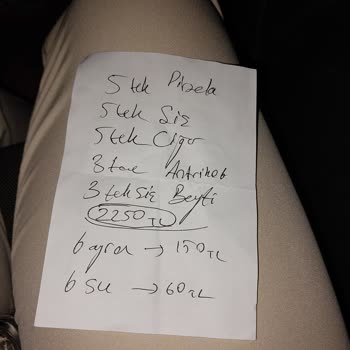 5 tek Pirzola
5 tek Şiş
5 tek Ciğer
3 tane Antrikot
3 tek Şiş Beyti
2250 TL
6 ayran → 150 TL
6 su → 60 TL